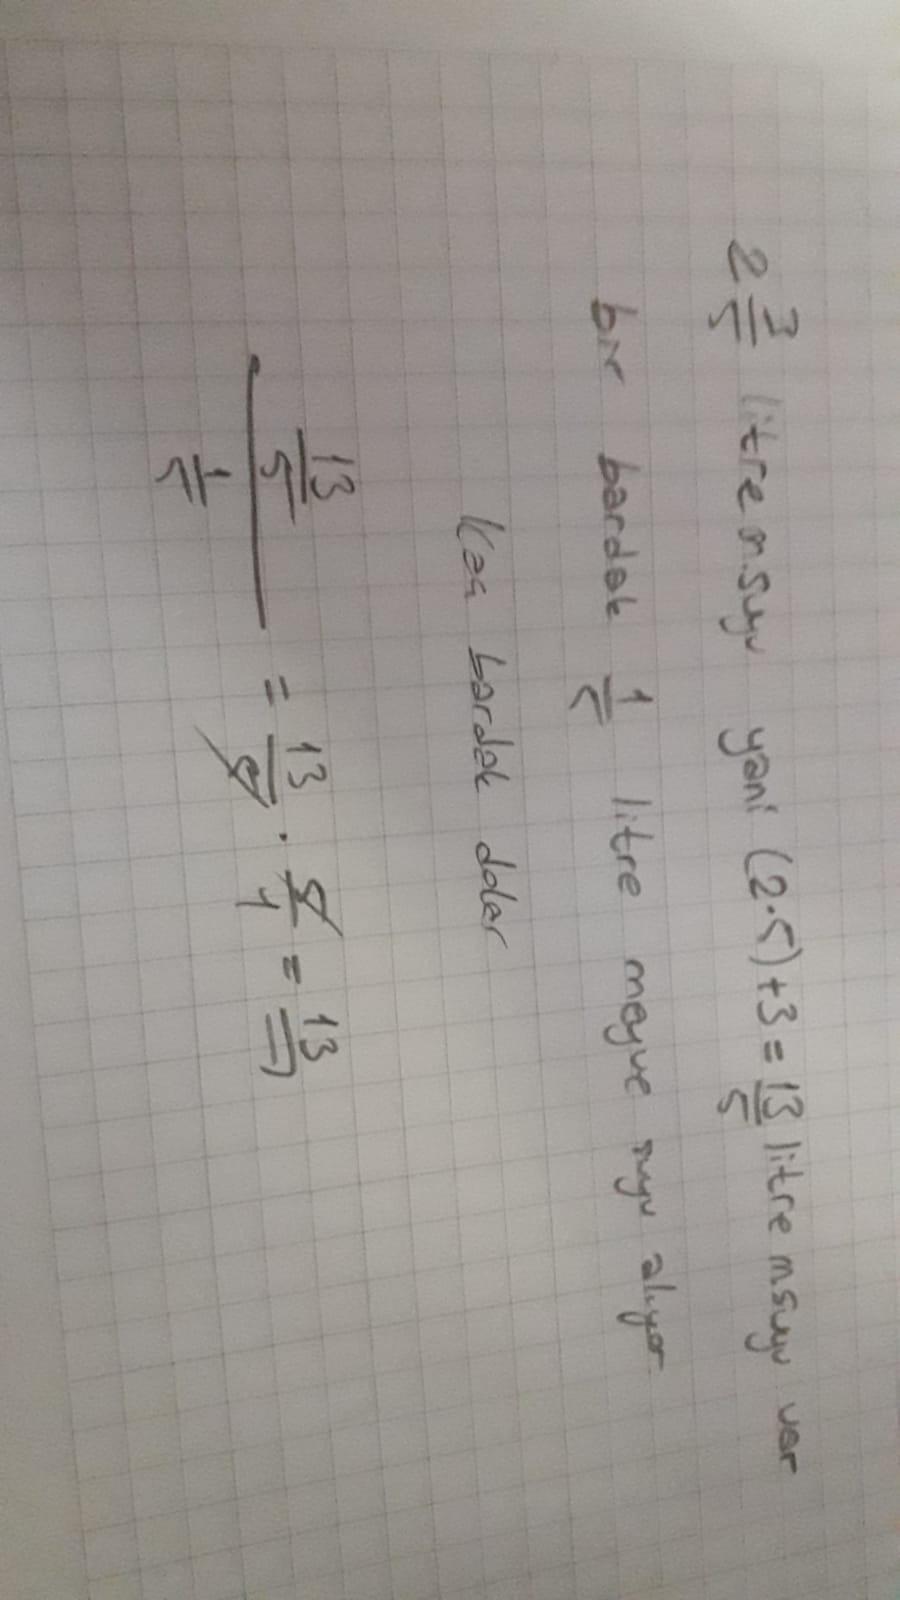 2 3/5 litre m.suyu yani (2.5)+3 = 13/5 litre msuyu var
bir bardak 1/5 litre meyve suyu alıyor
kaç bardak dolar
13/5 / 1/5 = 13/5 . 5/1 = 13